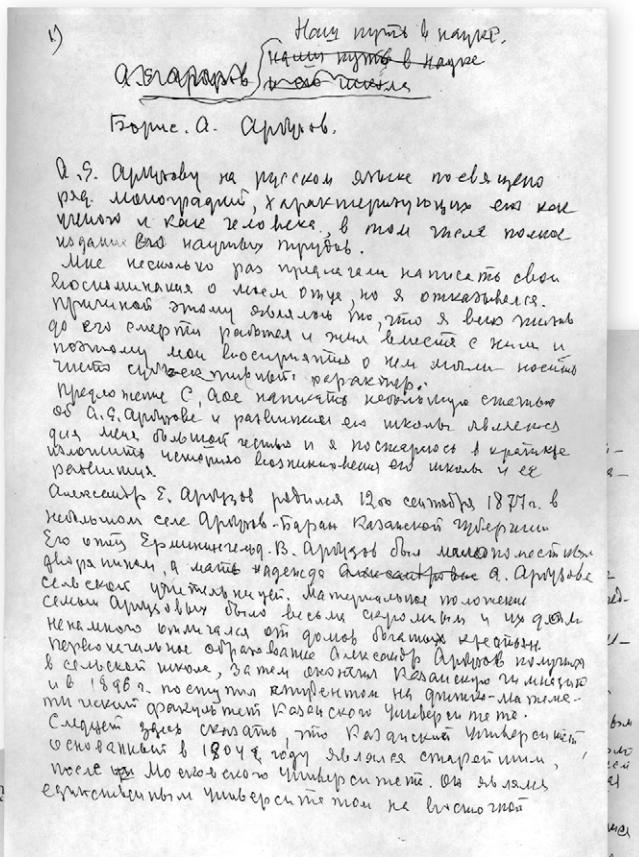 1) Наш путь в науке.
наш путь в науке
и его школа
Борис. А. Арбузов.
А. Е. Арбузову на русском языке посвящено
ряд монографий, характеризующих его как
ученого и как человека, в том числе полное
издание его научных трудов.
Мне несколько раз предлагали написать свои
воспоминания о моем отце, но я отказывался.
Причиной этому являлось то, что я всю жизнь
до его смерти работал и жил вместе с ним и
поэтому мои восприятия о нем могли носить
чисто субъективный характер.
Предложение написать небольшую статью
об А. Е. Арбузове и развитии его школы является
для меня большой честью и я постараюсь в кратце
изложить историю возникновения его школы и ее
развития.
Александр Е. Арбузов родился 12го сентября 1877 г. в
небольшом селе Арбузов-Баран Казанской губернии
Его отец Ерминингельд. В. Арбузов был мелкопоместным
дворянином, а мать Надежда Александровна А. Арбузова
сельской учительницей. Материальное положение
семьи Арбузовых было весьма скромным и их дом
ненамного отличался от домов богатых крестьян.
Первоначальное образование Александр Арбузов получил
в сельской школе, затем окончил Казанскую гимназию
и в 1896 г. поступил студентом на физико-матема-
тический факультет Казанского Университета.
Следует здесь сказать, что Казанский Университет
основанный в 1804 году, являлся старейшим,
после Московского Университет. Он являлся
единственным Университетом на восточной